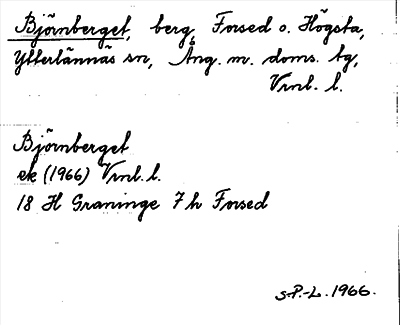 Björnberget, berg, Forsed o. Högsta,
Ytterlännäs sn, Ång. m. doms. tg,
Vrnl. l.
Björnberget
ek (1966) Vrnl. l.
18 H Graninge 7 h Forsed
S-P.-L. 1966.